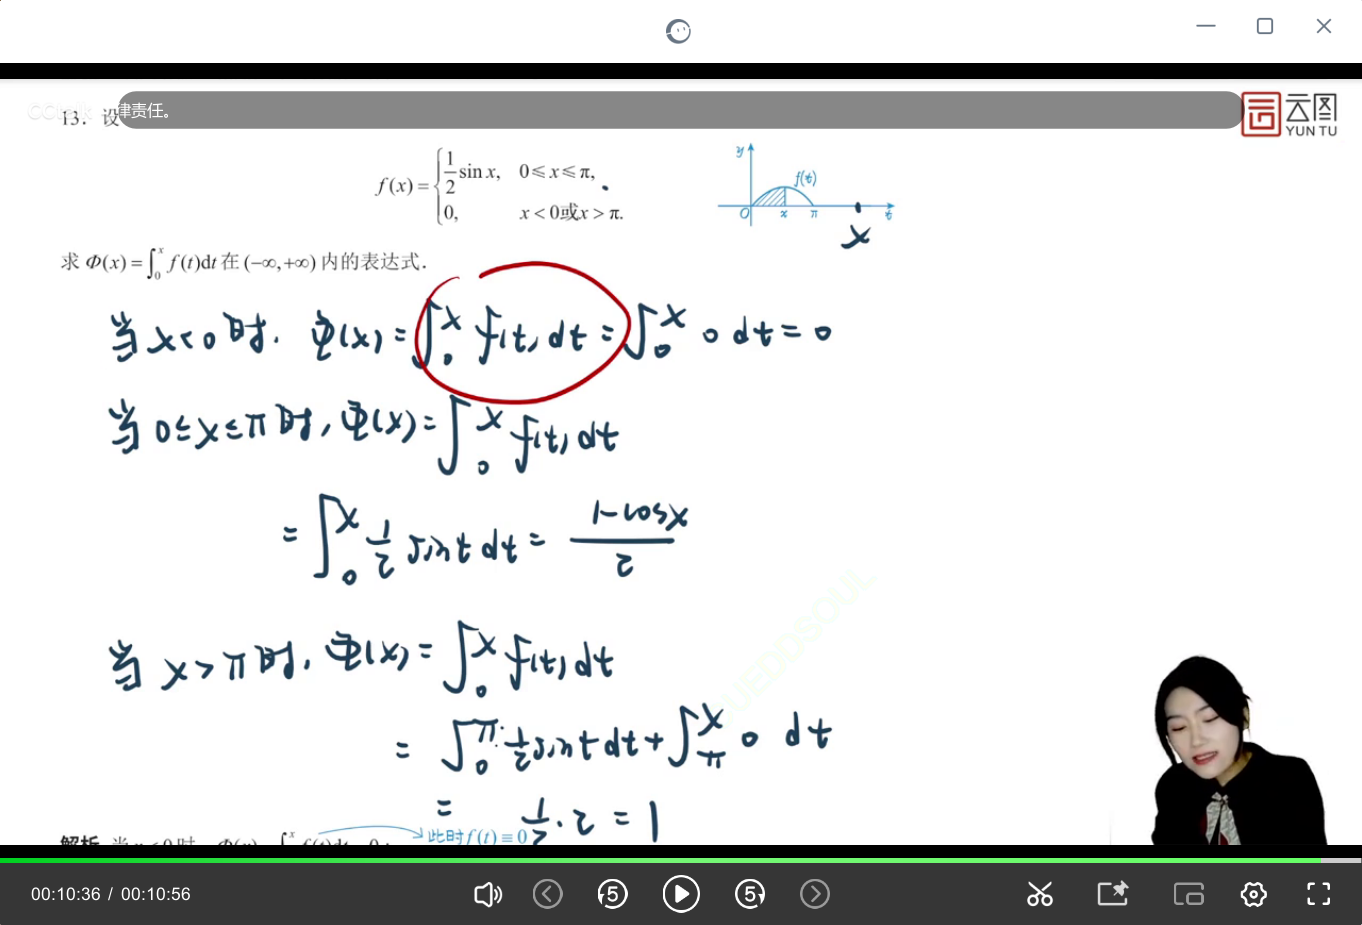 律责任。
13. 设
云图
YUN TU
f(x) = { 1/2 sin x, 0 ≤ x ≤ π,
0, x < 0或x > π.
y
f(t)
O x π t
x
求 Φ(x) = ∫₀ˣ f(t)dt 在 (−∞,+∞) 内的表达式.
当 x<0 时. Φ(x) = ∫₀ˣ f(t)dt = ∫₀ˣ 0 dt = 0
当 0≤x≤π 时, Φ(x) = ∫₀ˣ f(t)dt
= ∫₀ˣ 1/2 sint dt = (1-cosx)/2
当 x>π 时, Φ(x) = ∫₀ˣ f(t)dt
= ∫₀^π 1/2 sint dt + ∫_π^x 0 dt
= 1/2 · 2 = 1
此时 f(t) ≡ 0
00:10:36 / 00:10:56
5 5